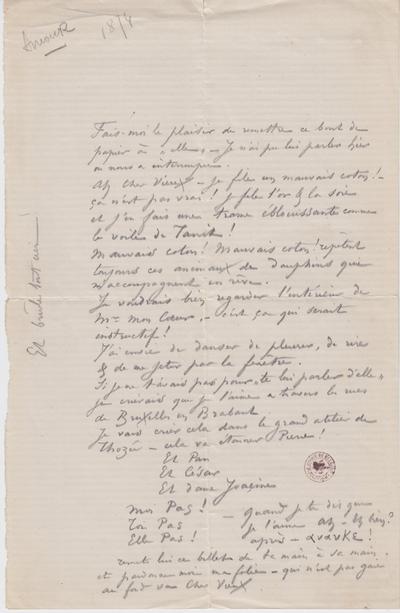 Amour
1874
Fais-moi le plaisir de remettre ce bout de
papier à "elle" - Je n'ai pu lui parler hier
on nous a interrompu.
Ah cher Vieux - je file un mauvais coton! -
ça n'est pas vrai! je file l'or & la soie
et j'en fais une trame éblouissante comme
le voile de Tanit!
Mauvais coton! Mauvais coton! répètent
toujours ces animaux de dauphins qui
m'accompagnent en rêve.
Je voudrais bien regarder l'intérieur de
Mr mon Cœur, - c'est ça qui serait
instructif!
J'ai envie de danser de pleurer, de rire
& de me jeter par la fenêtre.
Si je ne t'avais pas pour "te lui parler d'elle"
je crierais que je l'aime à travers les rues
de Bruxelles en Brabant
Je vais crier cela dans le grand atelier de
- cela va étonner Pierre!
Et Pan
Et César
Et dame
Moi Pas!
Toi Pas
Elle Pas!
- quand je te dis que
je l'aime Ah - Eh bien?
après - ανανκε!
remets lui ce billet de ta main à sa main.
et pardonne moi ma folie - qui n'est pas gaie
au fond va Cher Vieux
Et brûle tout ceci!